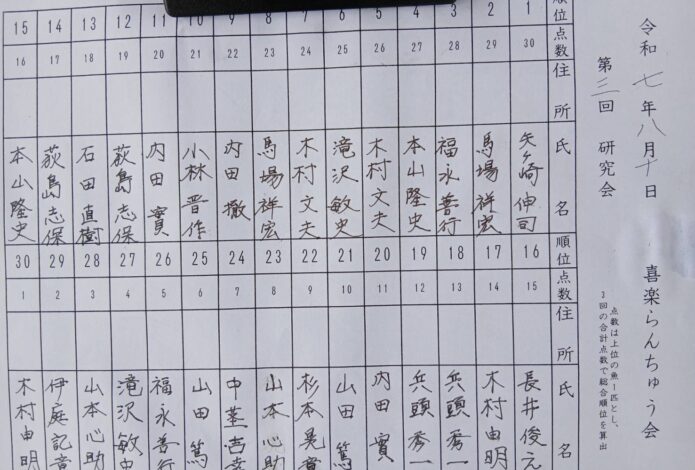 令和七年八月十日　喜楽らんちゅう会
第三回　研究会
点数は上位の魚1匹とし、
3回の合計点数で総合順位を算出
順位 1 2 3 4 5 6 7 8 9 10 11 12 13 14 15
点数 30 29 28 27 26 25 24 23 22 21 20 19 18 17 16
住所
氏名
矢ヶ崎 伸司
馬場 祥宏
福永 善行
本山 隆史
木村 文夫
滝沢 敏史
木村 文夫
馬場 祥宏
内田 撤
小林 晋作
内田 實
荻島 志保
石田 直樹
荻島 志保
本山 隆史
順位 16 17 18 19 20 21 22 23 24 25 26 27 28 29 30
点数 15 14 13 12 11 10 9 8 7 6 5 4 3 2 1
住所
氏名
長井 俊
木村 由明
兵頭 秀一
兵頭 秀一
内田 實
山田 篤
杉本 晃章
山本 心助
中茎
山田 篤
福永 善行
滝沢 敏史
山本 心助
伊庭 記章
木村 由明